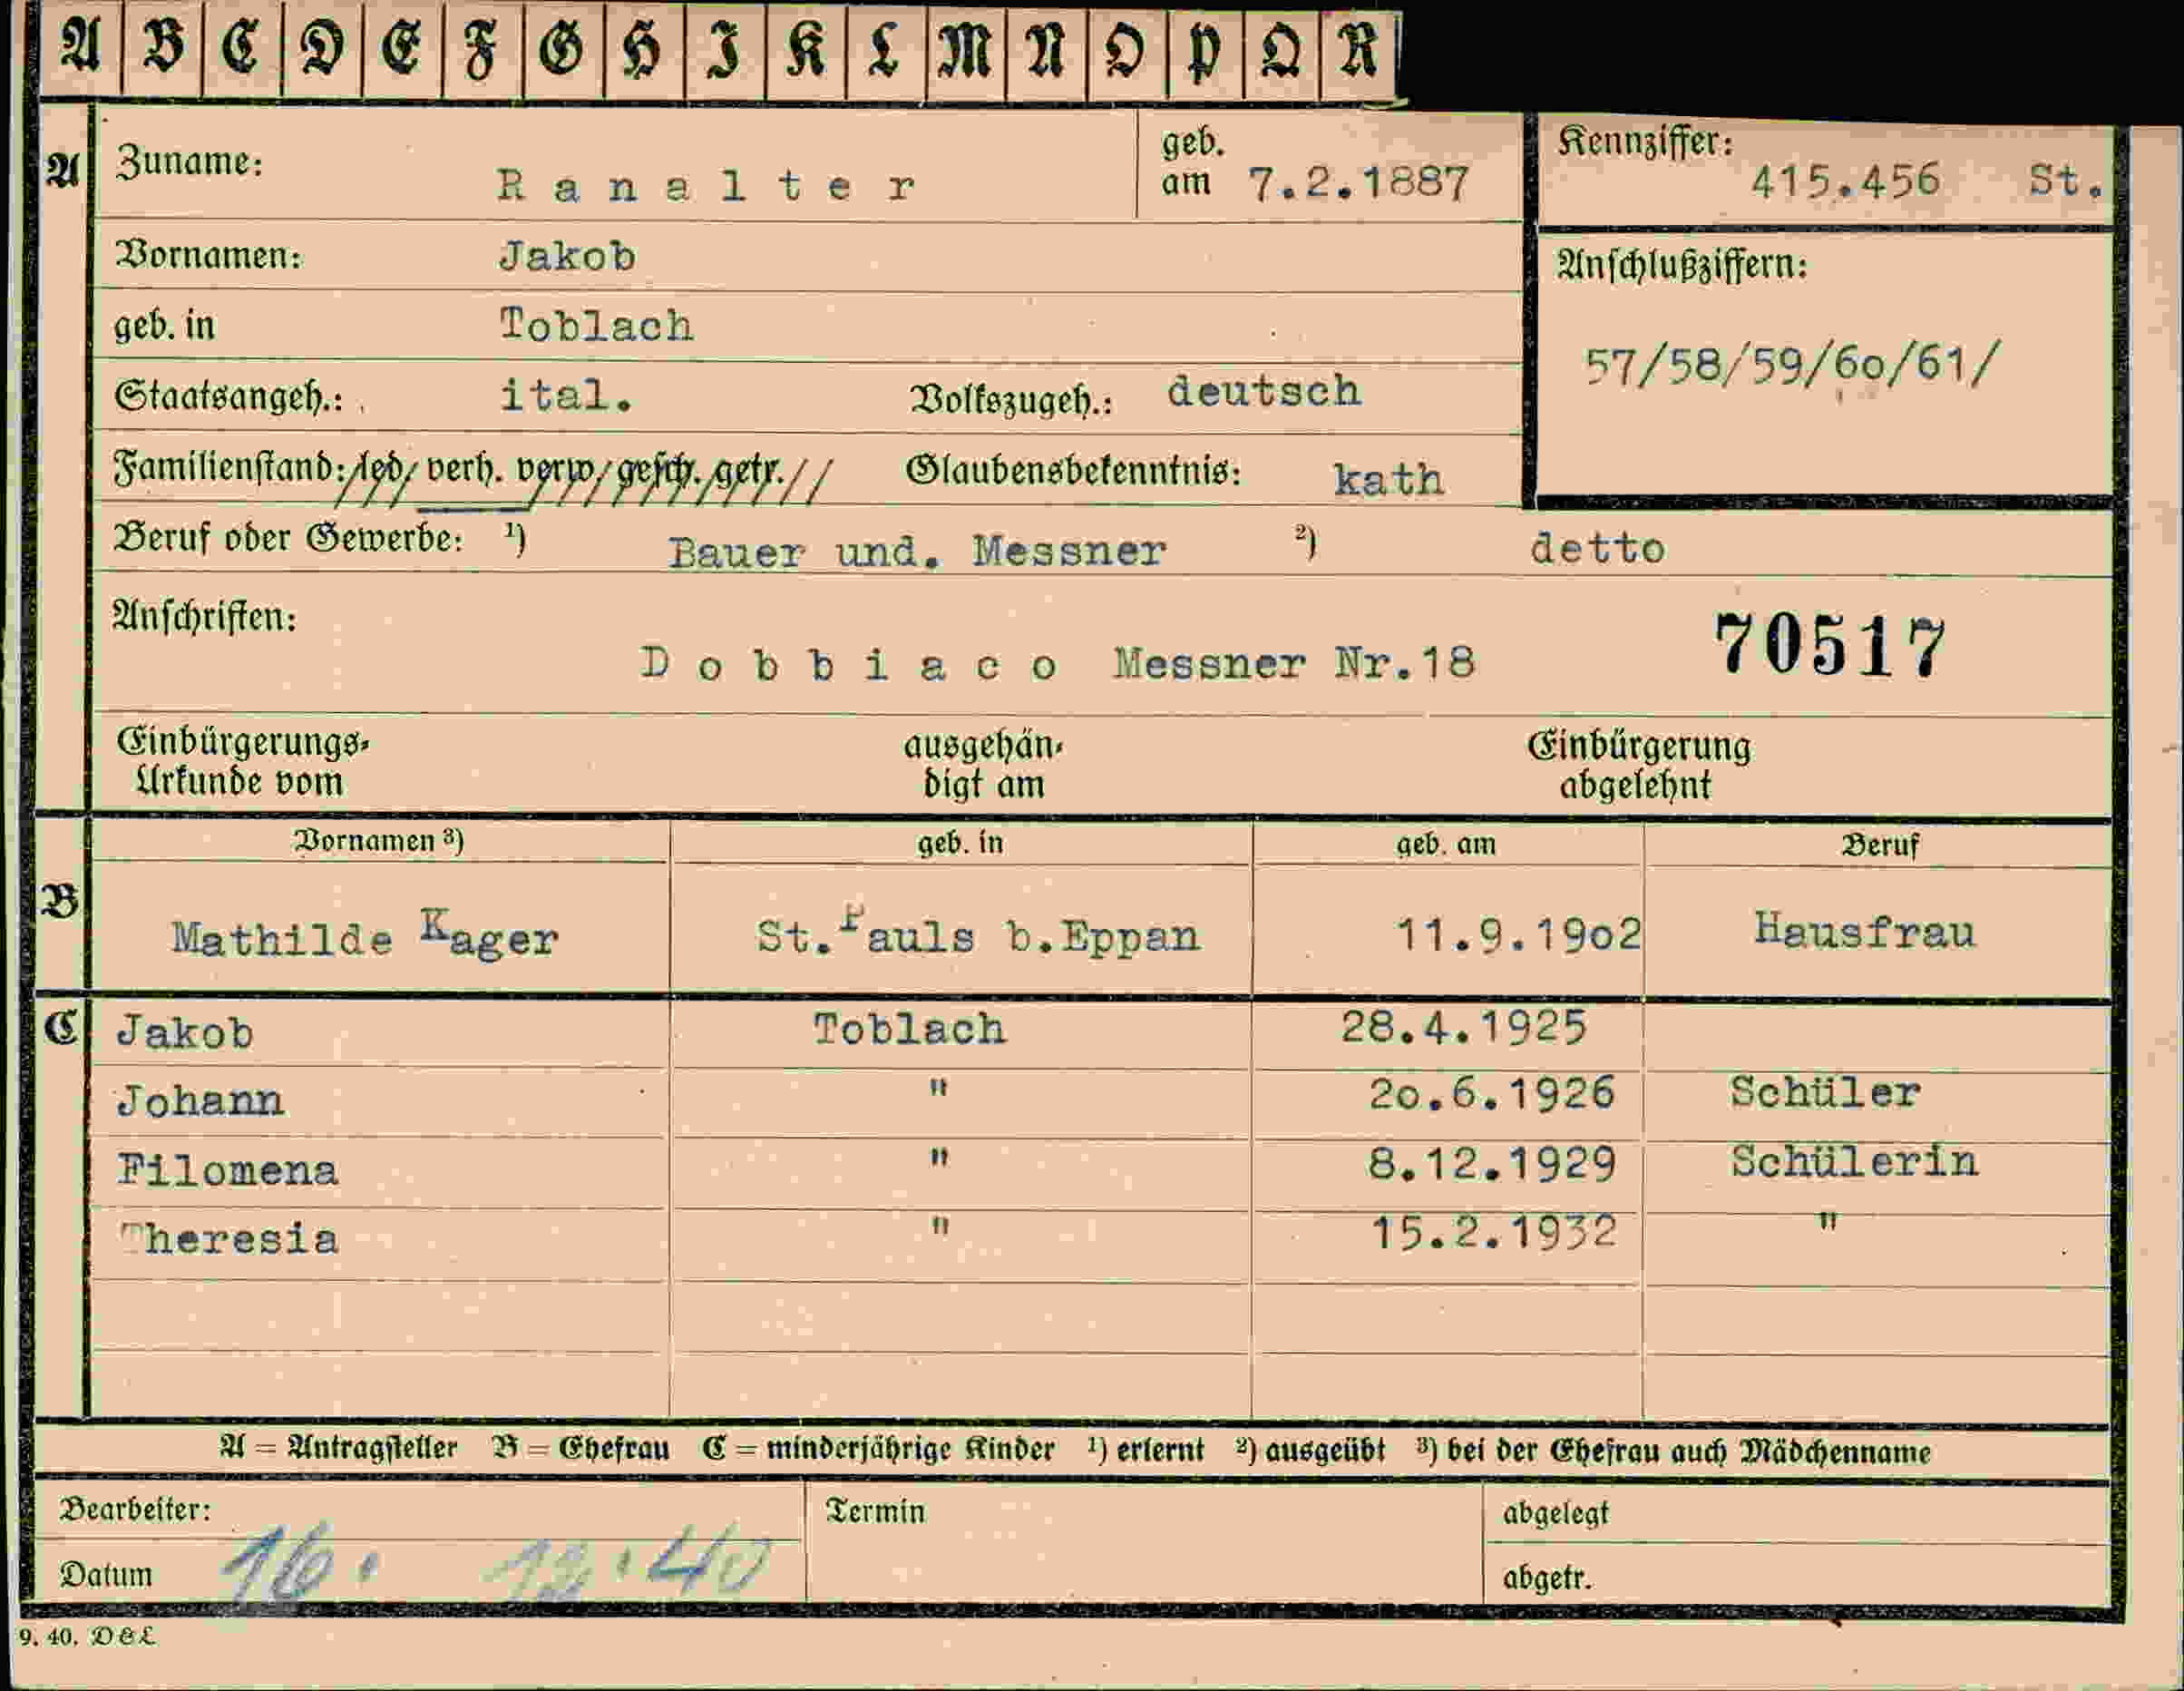 A B C D E F G H I K L M N O P Q R
A Zuname: Ranalter geb. am 7.2.1887 Kennziffer: 415.456 St.
Vornamen: Jakob Anschlußziffern:
geb. in Toblach 57/58/59/6o/61/
Staatsangeh.: ital. Volkszugeh.: deutsch
Familienstand: led. verh. verw. gesch. getr. Glaubensbekenntnis: kath
Beruf oder Gewerbe: ¹) Bauer und. Messner ²) detto
Anschriften: 70517
Dobbiaco Messner Nr.18
Einbürgerungs- ausgehän- Einbürgerung
Urkunde vom digt am abgelehnt
Vornamen ³) geb. in geb. am Beruf
B Mathilde Kager St.Pauls b.Eppan 11.9.19o2 Hausfrau
C Jakob Toblach 28.4.1925
Johann " 2o.6.1926 Schüler
Filomena " 8.12.1929 Schülerin
Theresia " 15.2.1932 "
A = Antragsteller B = Ehefrau C = minderjährige Kinder ¹) erlernt ²) ausgeübt ³) bei der Ehefrau auch Mädchenname
Bearbeiter: Termin abgelegt
Datum 16. 12.40 abgetr.
9. 40. D & L